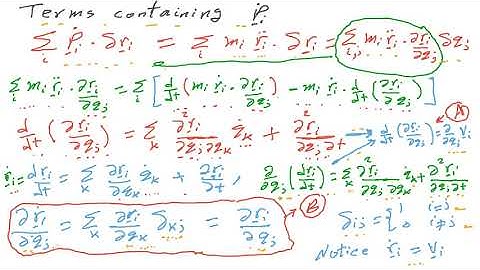 Terms containing Ṗᵢ
Σᵢ Ṗᵢ · δrᵢ = Σᵢ mᵢ r̈ᵢ · δrᵢ = Σᵢ,ⱼ mᵢ r̈ᵢ · ∂rᵢ/∂qⱼ δqⱼ
Σᵢ mᵢ r̈ᵢ · ∂rᵢ/∂qⱼ = Σᵢ [ d/dt (mᵢ ṙᵢ · ∂rᵢ/∂qⱼ) − mᵢ ṙᵢ · d/dt (∂rᵢ/∂qⱼ) ]
d/dt (∂rᵢ/∂qⱼ) = Σₖ ∂²rᵢ/∂qⱼ∂qₖ q̇ₖ + ∂²rᵢ/∂qⱼ∂t
d/dt (∂rᵢ/∂qⱼ) = ∂/∂qⱼ vᵢ Ⓐ
ṙᵢ = drᵢ/dt = Σₖ ∂rᵢ/∂qₖ q̇ₖ + ∂rᵢ/∂t , ∂/∂qⱼ (drᵢ/dt) = Σₖ ∂²rᵢ/∂qⱼ∂qₖ q̇ₖ + ∂²rᵢ/∂qⱼ∂t
∂ṙᵢ/∂q̇ⱼ = Σₖ ∂rᵢ/∂qₖ δₖⱼ = ∂rᵢ/∂qⱼ Ⓑ
δᵢⱼ = { 1 i=j
0 i≠j
Notice ṙᵢ = vᵢ